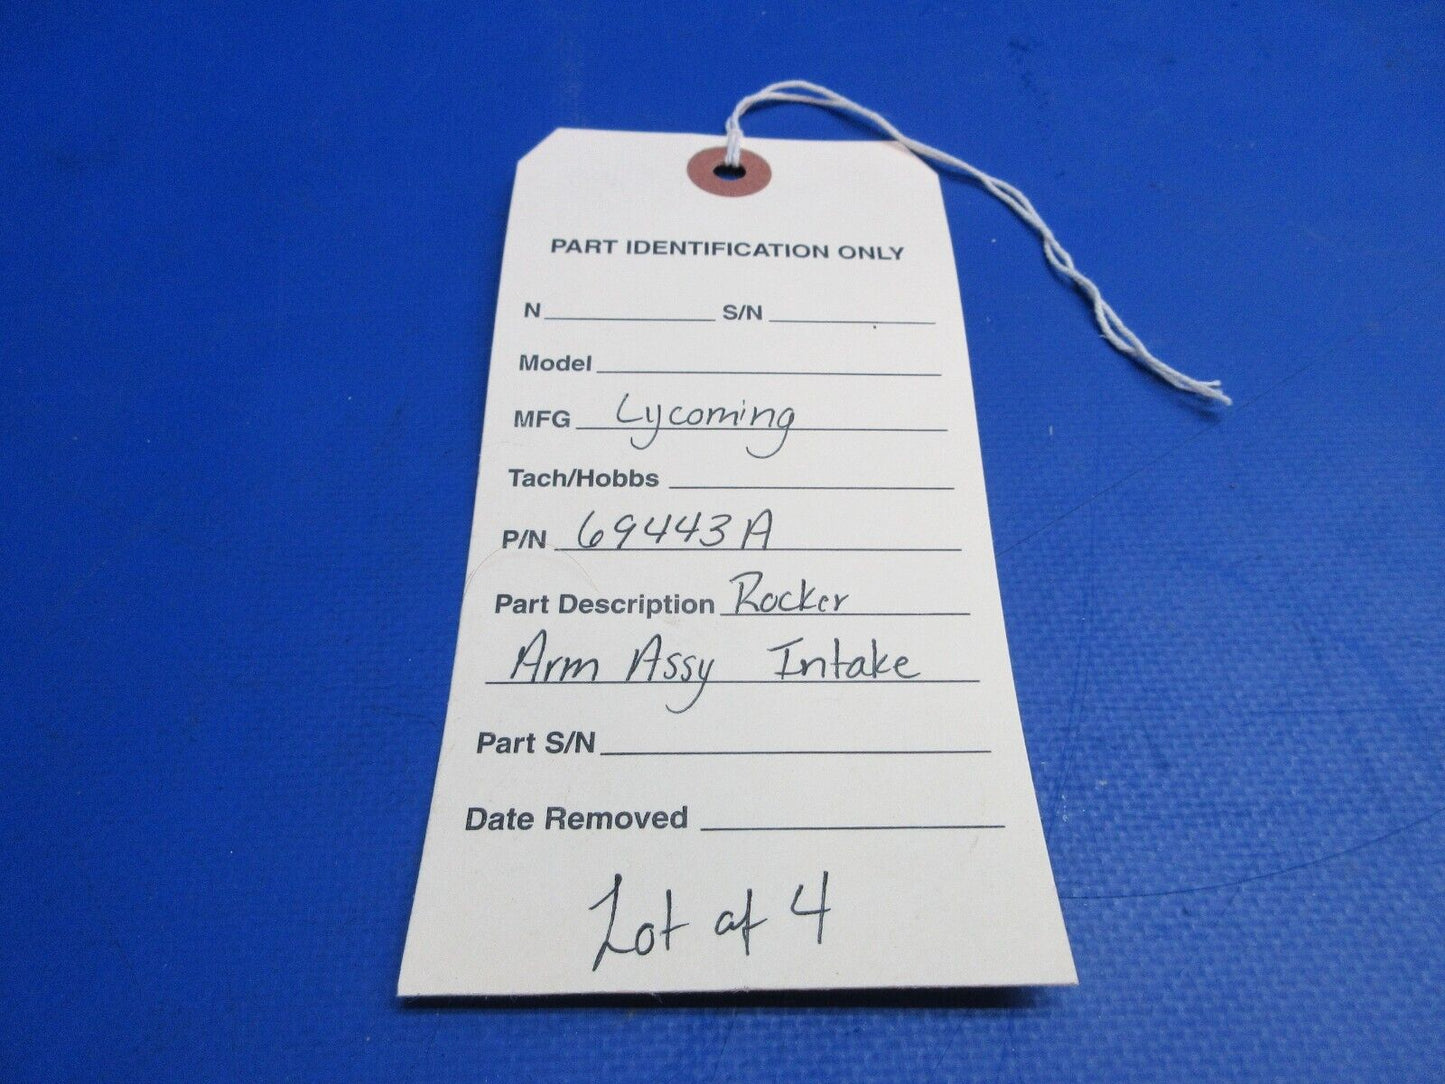 PART IDENTIFICATION ONLY
N S/N
Model
MFG Lycoming
Tach/Hobbs
P/N 69443A
Part Description Rocker
Arm Assy Intake
Part S/N
Date Removed
Lot of 4